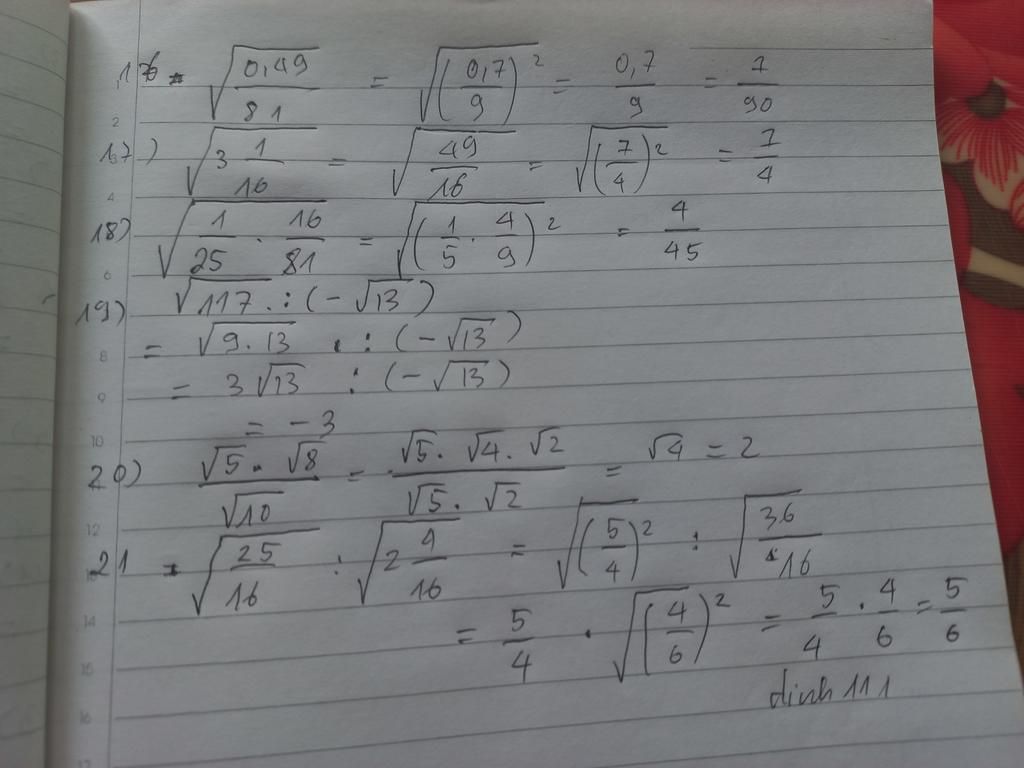 16. √(0,49/81) = √(0,7/9)² = 0,7/9 = 7/90
17.) √(3 1/16) = √(49/16) = √(7/4)² = 7/4
18) √(1/25 . 16/81) = √(1/5 . 4/9)² = 4/45
19) √117 : (-√13)
= √9.13 : (-√13)
= 3√13 : (-√13)
= -3
20) (√5 . √8)/√10 = (√5 . √4 . √2)/(√5 . √2) = √4 = 2
21 √(25/16) : √(2 9/16) = √(5/4)² : √(36/16)
= 5/4 . √(4/6)² = 5/4 . 4/6 = 5/6